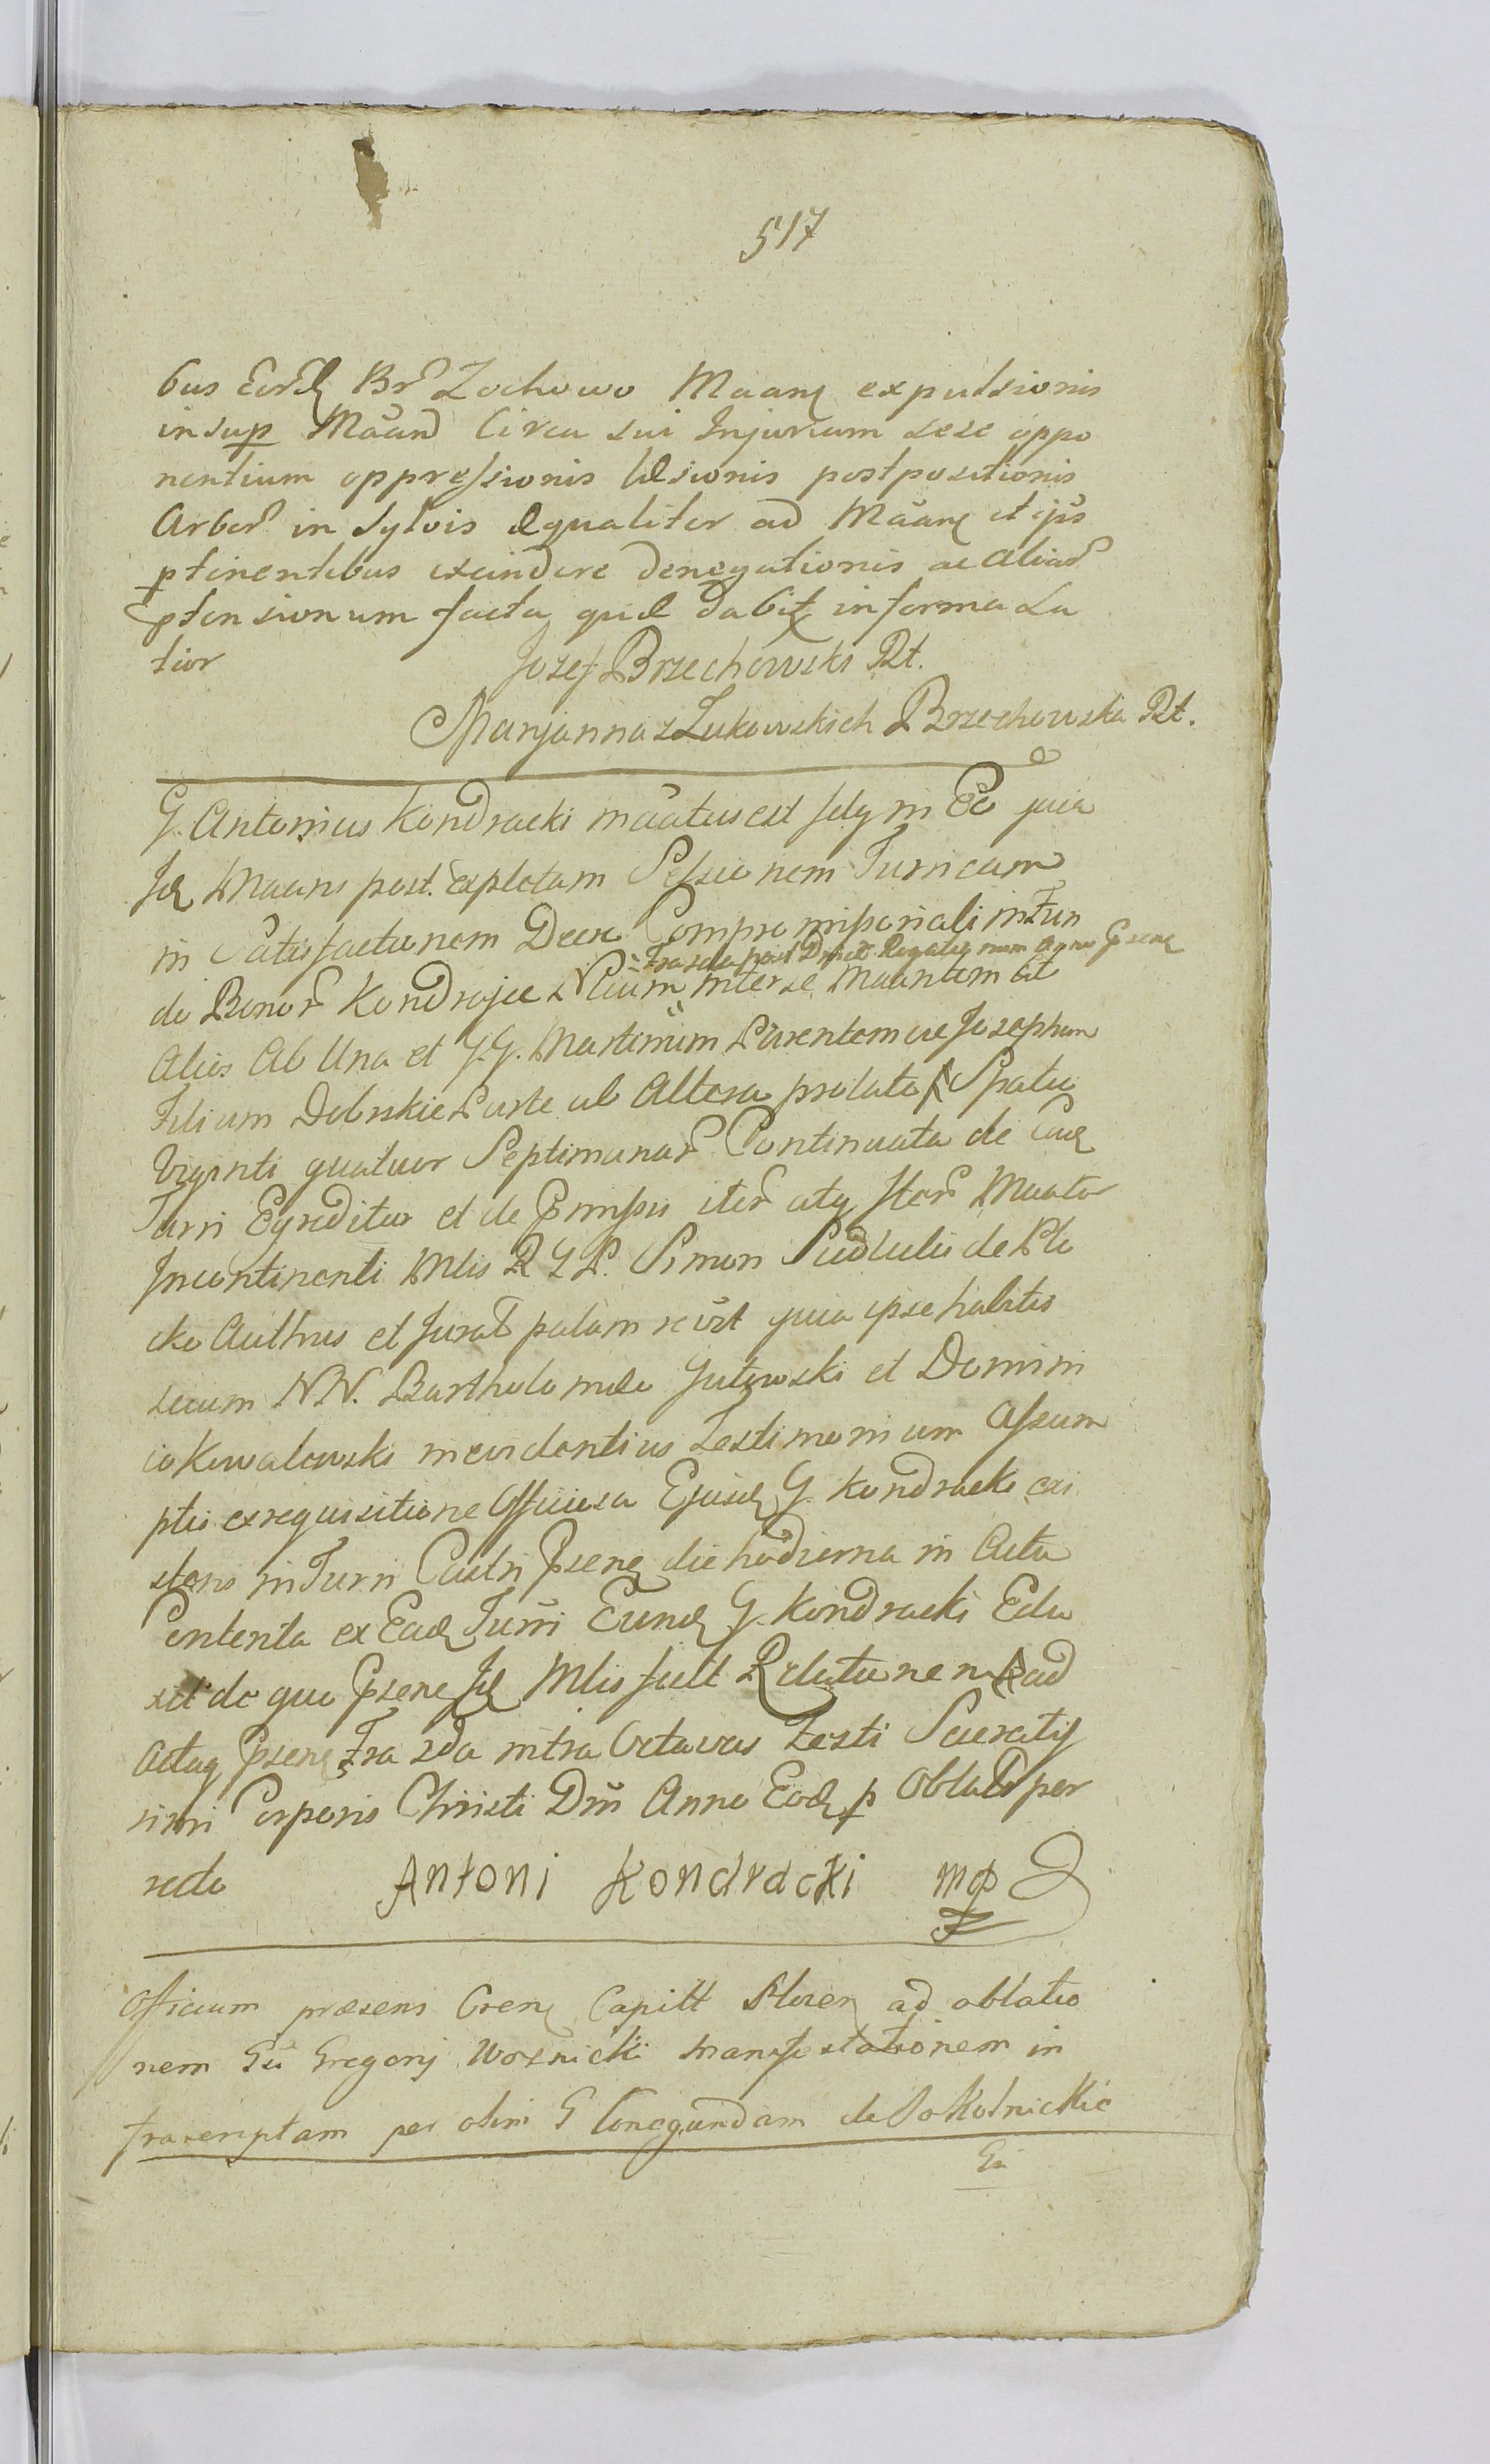 517
bus Eord Br Zochowo Maang expulsionis
insup Maand Circa sui Injuriam sese oppo
nentium oppressionis læsionis postpositionis
Arbor in Sylvis æqualiter ad Maang et ejus
ptinentibus exindere denegationis ac aliar
ptensionum facta quæ dabit in forma La
tior Jozef Brzechowski Rt.
Marjanna z Łukowskich Brzechowska Rt.
G. Antonius Kondracki maatus est in Eo quia
Maans post expletam Sessionem Turricam
in Satisfactionem Decr Compromissoriali in Fun
Fra post
do Bonor Kondrajec inter se Maantem ab
Alias Ab Una et G.G. Martinum Parentem ac Josephum
Filium Dobrskie Parte ab Altera prolato Spatio
Viginti quatuor Septimanar Continuata de Ead
Turri Egreditur et de Pmissis iter atq Iter Maatur
Incontinenti Mlis R G P. Simon de Plo
cko Authus et Jurat palam quia ipse habitis
secum NN. Bartholomeo Gutowski et Domini
co Kowalewski in evidentius Testimonium Assum
ptis ex requisitione Officiosa Ejusd G. Kondracki exi
stens in Turri Castri Psen die hodierna in Actu
Contenta ex Ead Turri Eund G. Kondracki Edu
xit de quo Psen Mlis fecit Relationem ad
Actaq Psen Fra 2da intra Octavas Festi Sacratis
simi Corporis Christi Dni Anno Eod p Oblat per
recto Antoni Kondracki mp
Officium præsens Cren Capitt Plocen ad oblatio
nem Gti Gregorij Woźnicki manifestationem in
frascriptam per olim G Conegundam de Sokolnickie